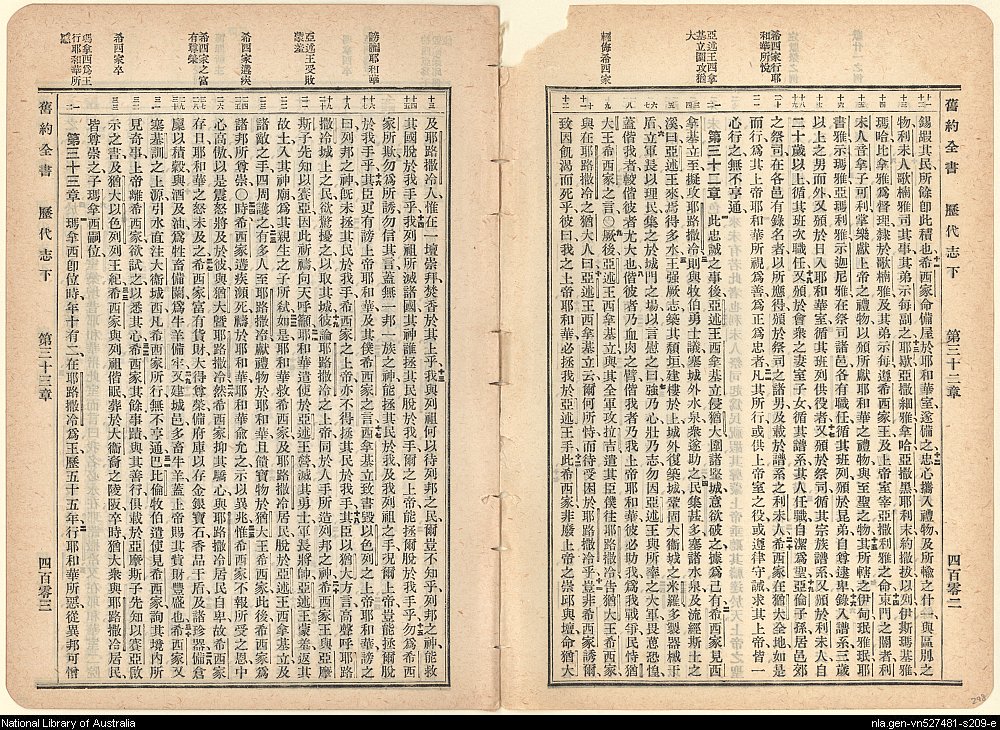 舊約全書 歷代志下 第三十二章 四百零二
錫嘏其民所餘卽此積也希西家命備屋於耶和華室遂備之忠心攜入禮物及所輸之什一與區別之
物利未人歌楠雅司其事其弟示每副之耶歇亞撒細雅拿哈亞撒黑耶利末約撒拔以列伊斯瑪基雅
瑪哈比拿雅爲督理隸於歌楠雅及其弟示每遵希西家王及上帝室宰亞撒利雅之命東門之閽者利
未人音拿子可利掌樂獻上帝之禮物以頒所獻耶和華之禮物與至聖之物其所轄之伊甸珉雅珉耶
書雅示瑪雅亞瑪利雅示迦尼雅在祭司諸邑各有職任循其班列頒於昆弟自尊逮卑錄入譜系三歲
以上之男而外又頒於日入耶和華室循其班列供役者又頒於祭司循其宗族譜系又頒於利未人自
二十歲以上循其班次職任又頒於會衆之妻室子女循其譜系其人任職自潔爲聖亞倫子孫居邑郊
之祭司在各邑有錄名者以所應得頒於祭司之諸男及載於譜系之利未人希西家在猶大全地如是
而行於其上帝耶和華所視爲善爲正爲忠者凡其所行或供上帝室之役或遵律守誡求其上帝皆一
心行之無不亨通
第三十二章 此忠誠之事後亞述王西拿基立侵猶大圍諸鞏城意欲破之據爲己有希西家見西
拿基立至擬攻耶路撒冷則與牧伯勇士議塞城外水泉衆遂助之民集甚多塞諸水泉及流經斯土之
溪曰亞述王來焉得多水王强厥志築其頹垣建樓於上城外復築城鞏固大衞城之米羅多製器械干
盾立軍長以理民集之於城門之塲以言慰之曰強乃心壯乃志勿因亞述王與所率之大軍畏葸恐惶
蓋偕我者較偕彼者尤大也偕彼者乃血肉之臂偕我者乃我上帝耶和華彼必助我爲我戰爭民恃猶
大王希西家之言〇厥後亞述王西拿基立與其全軍攻拉吉遣其臣僕往耶路撒冷告猶大王希西家
與在耶路撒冷之猶大人曰亞述王西拿基立云爾何所恃而待受困於耶路撒冷乎豈非希西家誘爾
致因飢渴而死乎彼曰我之上帝耶和華必拯我於亞述王手此希西家非廢上帝之崇邱與壇命猶大
希西家行耶和華所悅
亞述王西拿基立圍攻猶大
輕侮希西家
舊約全書 歷代志下 第三十三章 四百零三
及耶路撒冷人惟在一壇崇拜焚香於其上乎我與列祖何以待列邦之民爾豈不知乎列邦之神能救
其國脫於我手乎我列祖所滅諸國其神誰拯其民脫於我手爾之上帝能拯爾脫於我手乎勿爲希西
家所欺勿爲所誘勿信其言蓋無一邦一族之神能拯其民於我及我列祖之手况爾上帝豈能拯爾脫
於我手乎其臣更有謗上帝耶和華及其僕希西家之言西拿基立致書毀以色列之上帝耶和華謗之
曰列邦之神旣未拯其民於我手希西家之上帝亦不得拯其民於我手其臣以猶大方言高聲呼耶路
撒冷城上之民欲驚擾之以取其城彼論耶路撒冷之上帝同於人手所造列邦之神希西家王與亞摩
斯子先知以賽亞因此祈禱向天呼籲耶和華遣使於亞述王營滅其勇士軍長將帥亞述王蒙羞返其
故土入其神廟爲其親生之子所弒如是耶和華救希西家及耶路撒冷居民脫於亞述王西拿基立及
諸敵之手四周護之有多人至耶路撒冷獻禮物於耶和華且饋寶物於猶大王希西家此後希西家爲
諸邦所尊崇〇時希西家遘疾瀕死禱於耶和華耶和華俞允之示以異兆惟希西家不報所受之恩中
心高傲以是震怒將及於彼與猶大暨耶路撒冷然希西家抑其驕心與耶路撒冷居民自卑故希西家
存日耶和華之怒未及之希西家富有貲財大得尊榮備府庫以存金銀寶石香品干盾及諸珍器備倉
廩以積穀與酒及油爲牲畜備闌爲牛羊備牢又建城邑多畜牛羊蓋上帝賜其貨財豐盛也希西家又
塞基訓之上源引水直注大衞城西凡希西家所行無不亨通巴比倫牧伯遣使見希西家詢其境內所
見奇事上帝離希西家欲試之以悉其心希西家其餘事蹟與其善行俱載於亞摩斯子先知以賽亞啟
示之書及猶大以色列列王紀希西家與列祖偕眠葬於大衞裔之陵阪卒時猶大衆與耶路撒冷居民
皆尊崇之子瑪拿西嗣位
第三十三章 瑪拿西卽位時年十有二在耶路撒冷爲王歷五十五年行耶和華所惡從異邦可憎
謗讟耶和華
亞述王受敗蒙羞
希西家遘疾
希西家之富有尊榮
希西家卒
瑪拿西爲王行耶和華所惡
National Library of Australia
nla.gen-vn527481-s209-e